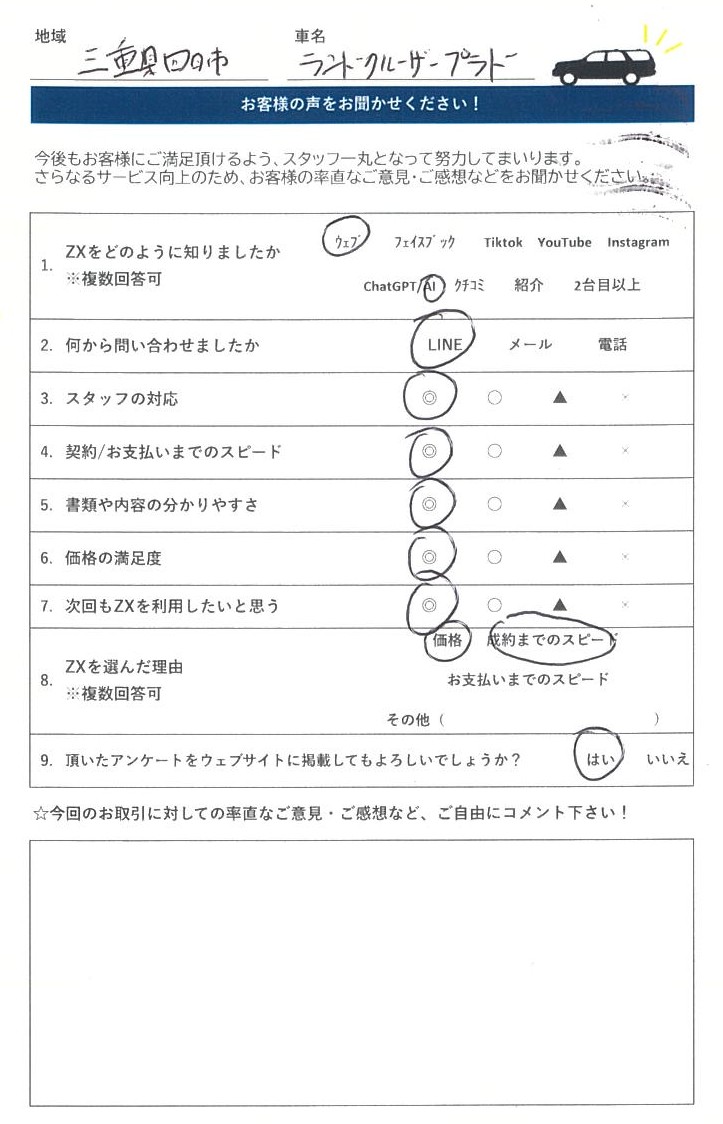 地域 車名
三重県四日市 ランドクルーザープラド
お客様の声をお聞かせください！
今後もお客様にご満足頂けるよう、スタッフ一丸となって努力してまいります。
さらなるサービス向上のため、お客様の率直なご意見・ご感想などをお聞かせください。
1. ZXをどのように知りましたか
※複数回答可
ウェブ フェイスブック Tiktok YouTube Instagram
ChatGPT/AI クチコミ 紹介 2台目以上
2. 何から問い合わせましたか LINE メール 電話
3. スタッフの対応 ◎ ○ ▲ ×
4. 契約/お支払いまでのスピード ◎ ○ ▲ ×
5. 書類や内容の分かりやすさ ◎ ○ ▲ ×
6. 価格の満足度 ◎ ○ ▲ ×
7. 次回もZXを利用したいと思う ◎ ○ ▲ ×
8. ZXを選んだ理由
※複数回答可
価格 成約までのスピード
お支払いまでのスピード
その他（ ）
9. 頂いたアンケートをウェブサイトに掲載してもよろしいでしょうか？ はい いいえ
☆今回のお取引に対しての率直なご意見・ご感想など、ご自由にコメント下さい！